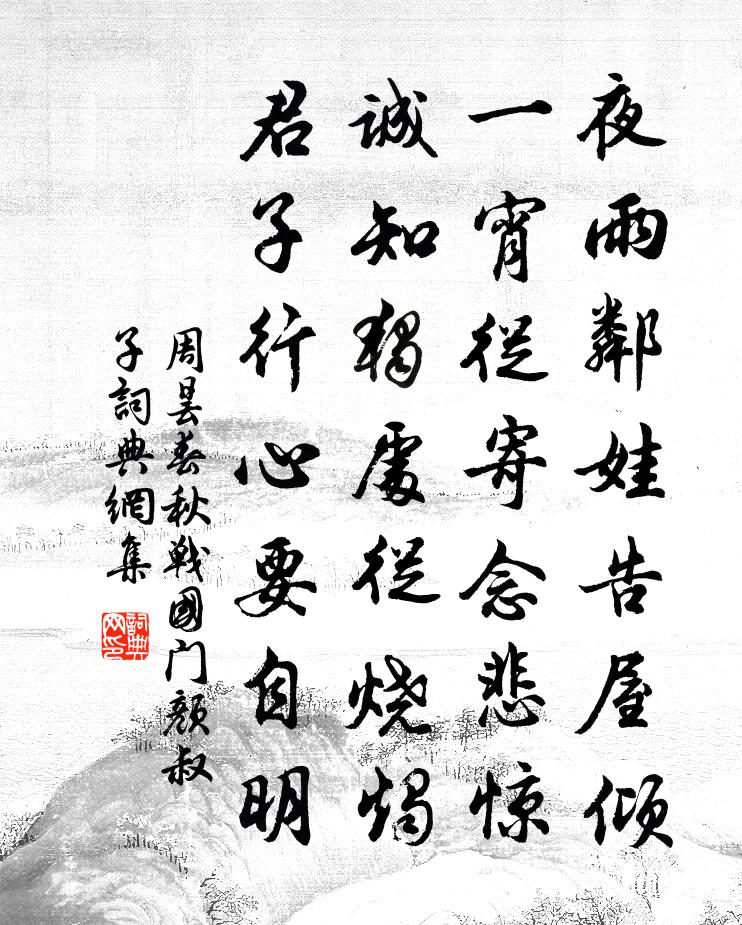 夜雨鄰娃告屋傾
一宵從寄念悲惊
誠知獨處從燒燭
君子行心要自明
周昙春秋戰國門顏叔
子詞典網集
詞典网印